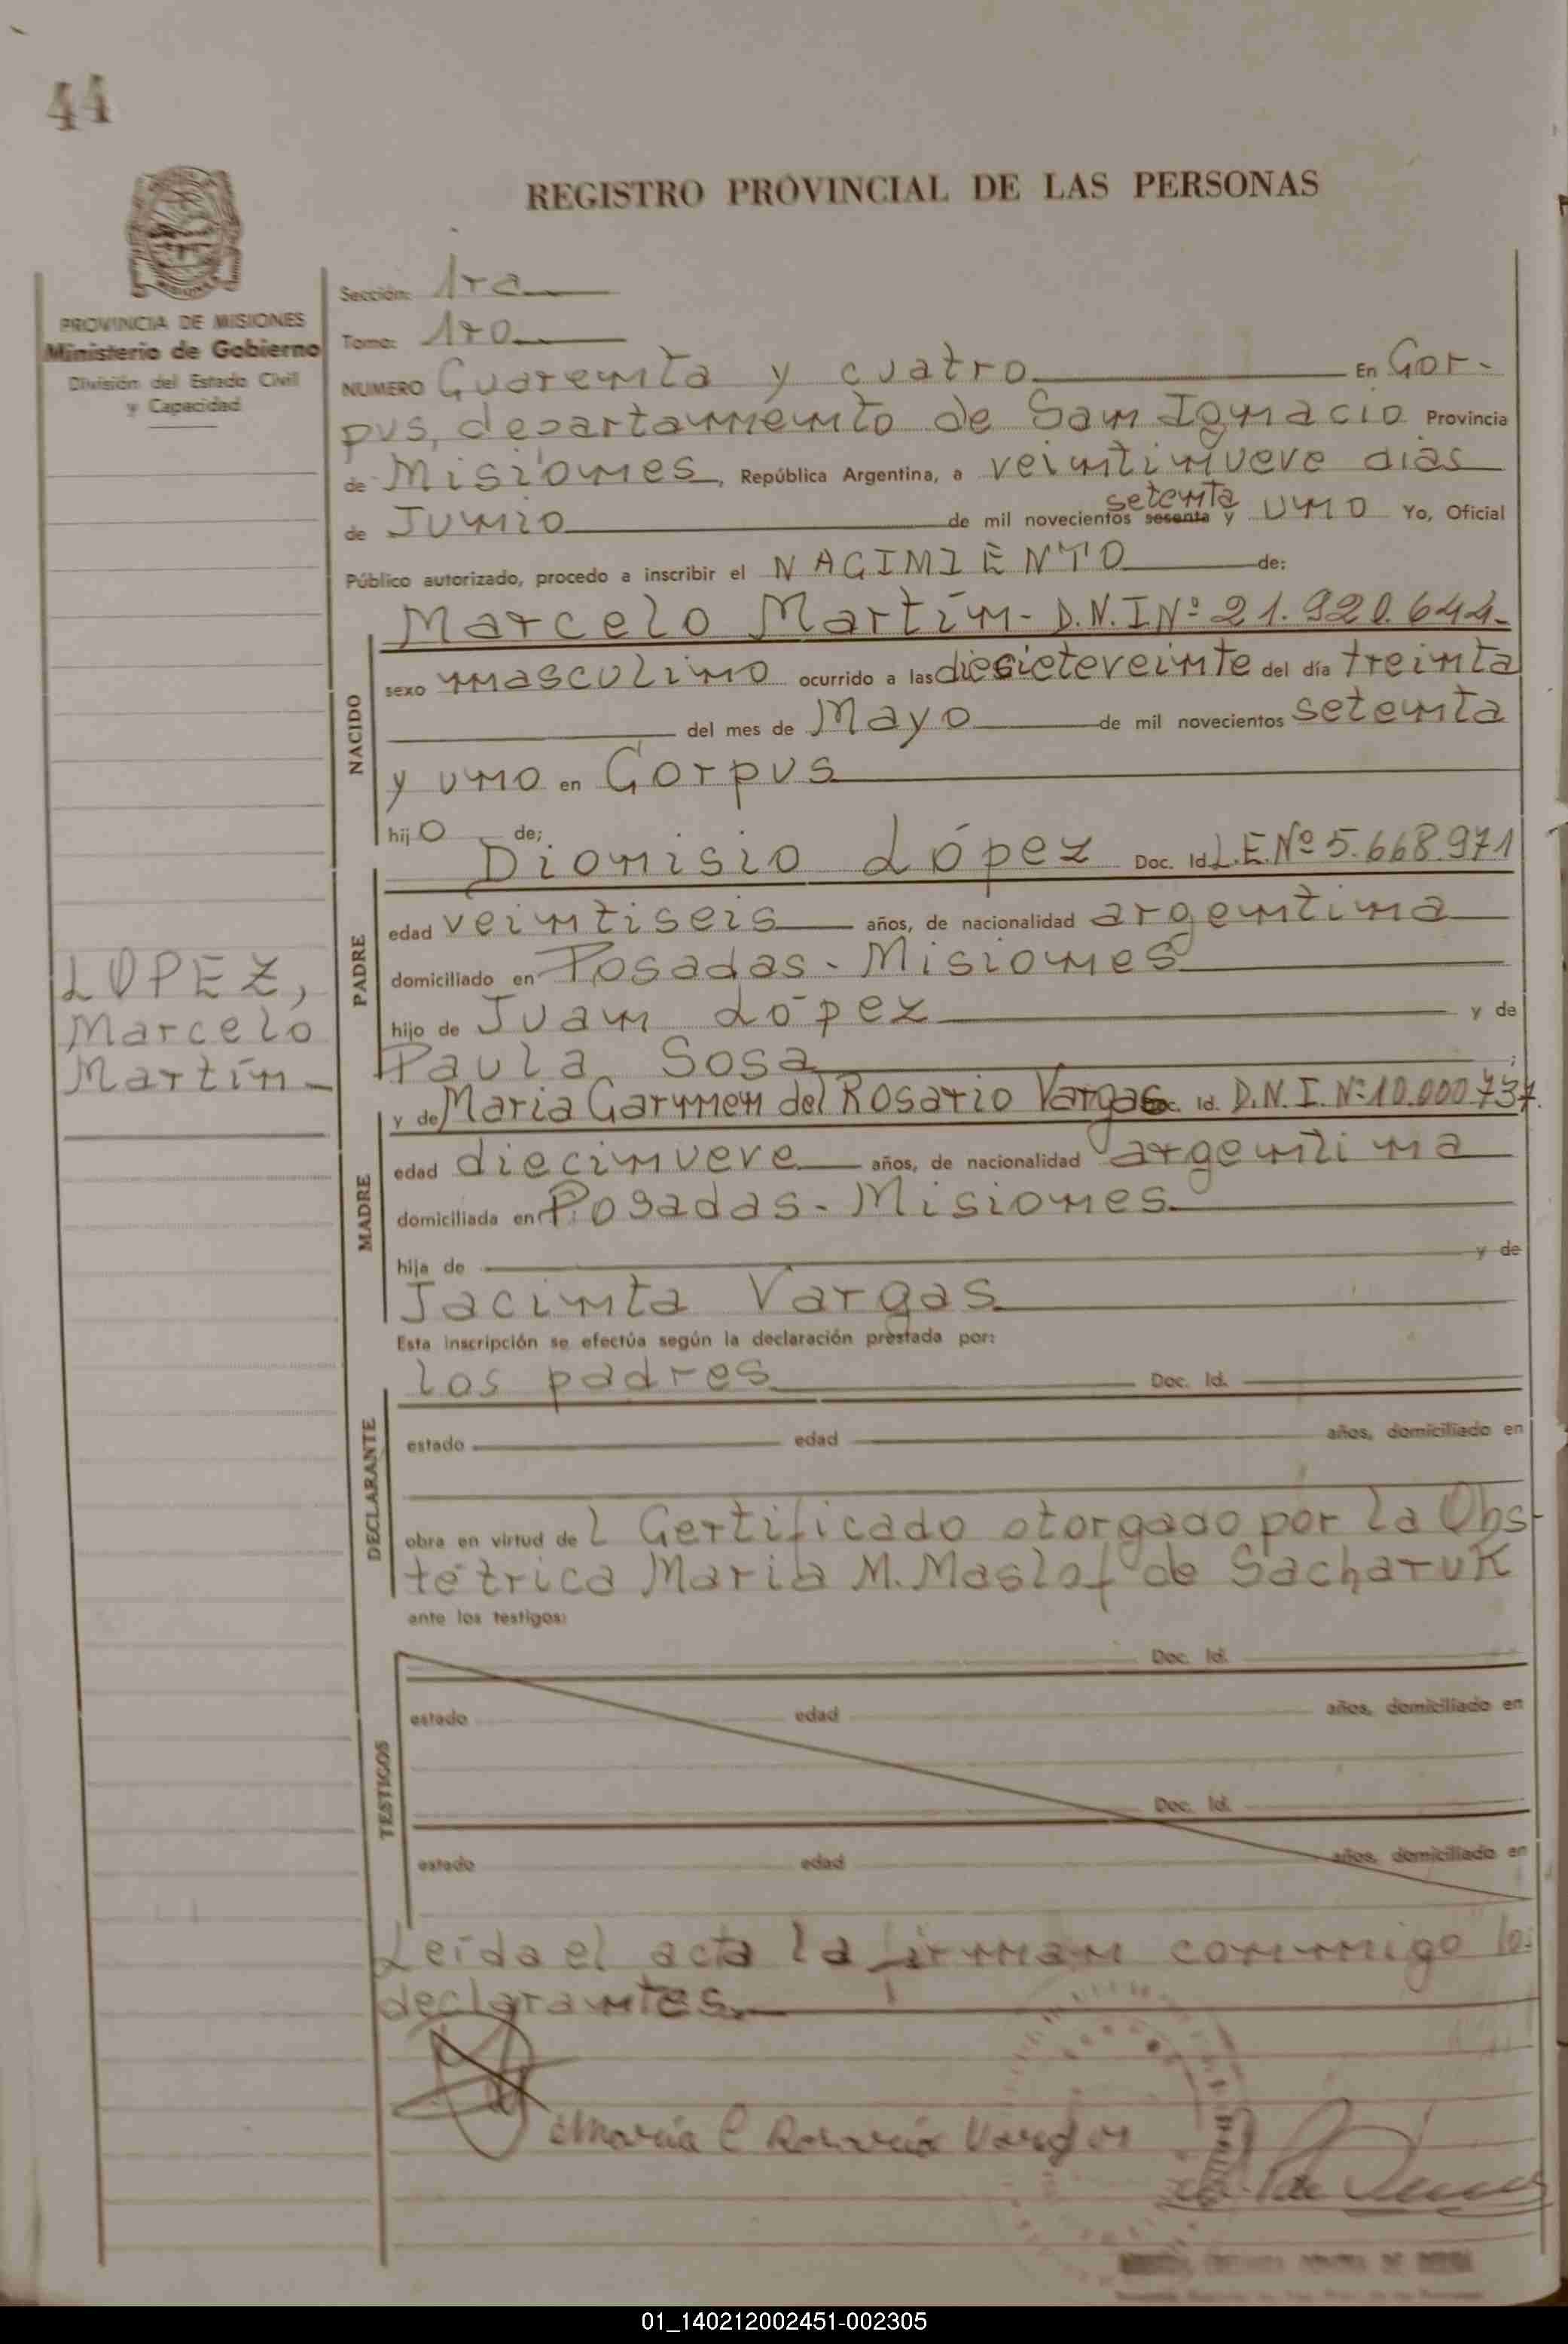 44
REGISTRO PROVINCIAL DE LAS PERSONAS
PROVINCIA DE MISIONES
Ministerio de Gobierno
División del Estado Civil
y Capacidad
Sección: 1ra
Tomo: 1ro
NUMERO Cuarenta y cuatro En Cor-
pus, departamento de San Ignacio Provincia
de Misiones, República Argentina, a veintinueve dias
setenta
de Junio de mil novecientos sesenta y uno Yo, Oficial
Público autorizado, procedo a inscribir el NACIMIENTO de:
Marcelo Martín- D.N.I.Nº 21.920.644-
NACIDO
sexo masculino ocurrido a las diecieteveinte del día treinta
del mes de Mayo de mil novecientos setenta
y uno en Corpus
hijo de;
Dionisio López Doc. Id. L.E.Nº 5.668.971
PADRE
edad veintiseis años, de nacionalidad argentina
domiciliado en Posadas - Misiones
hijo de Juan López y de
Paula Sosa ;
LOPEZ,
Marcelo
Martín-
y de Maria Carmen del Rosario Vargas Doc. Id. D.N.I. Nº 10.000.737.
MADRE
edad diecinueve años, de nacionalidad argentina
domiciliada en Posadas - Misiones
hija de y de
Jacinta Vargas
Esta inscripción se efectúa según la declaración prestada por:
los padres Doc. Id.
DECLARANTE
estado edad años, domiciliado en
obra en virtud de l Certificado otorgado por la Obs-
tétrica Maria M. Maslof de Sacharuk
ante los testigos:
Doc. Id.
TESTIGOS
estado edad años, domiciliado en
Doc. Id.
estado edad años, domiciliado en
Leída el acta la firman conmigo los
declarantes.
Maria C Rosario Vargas
01_140212002451-002305